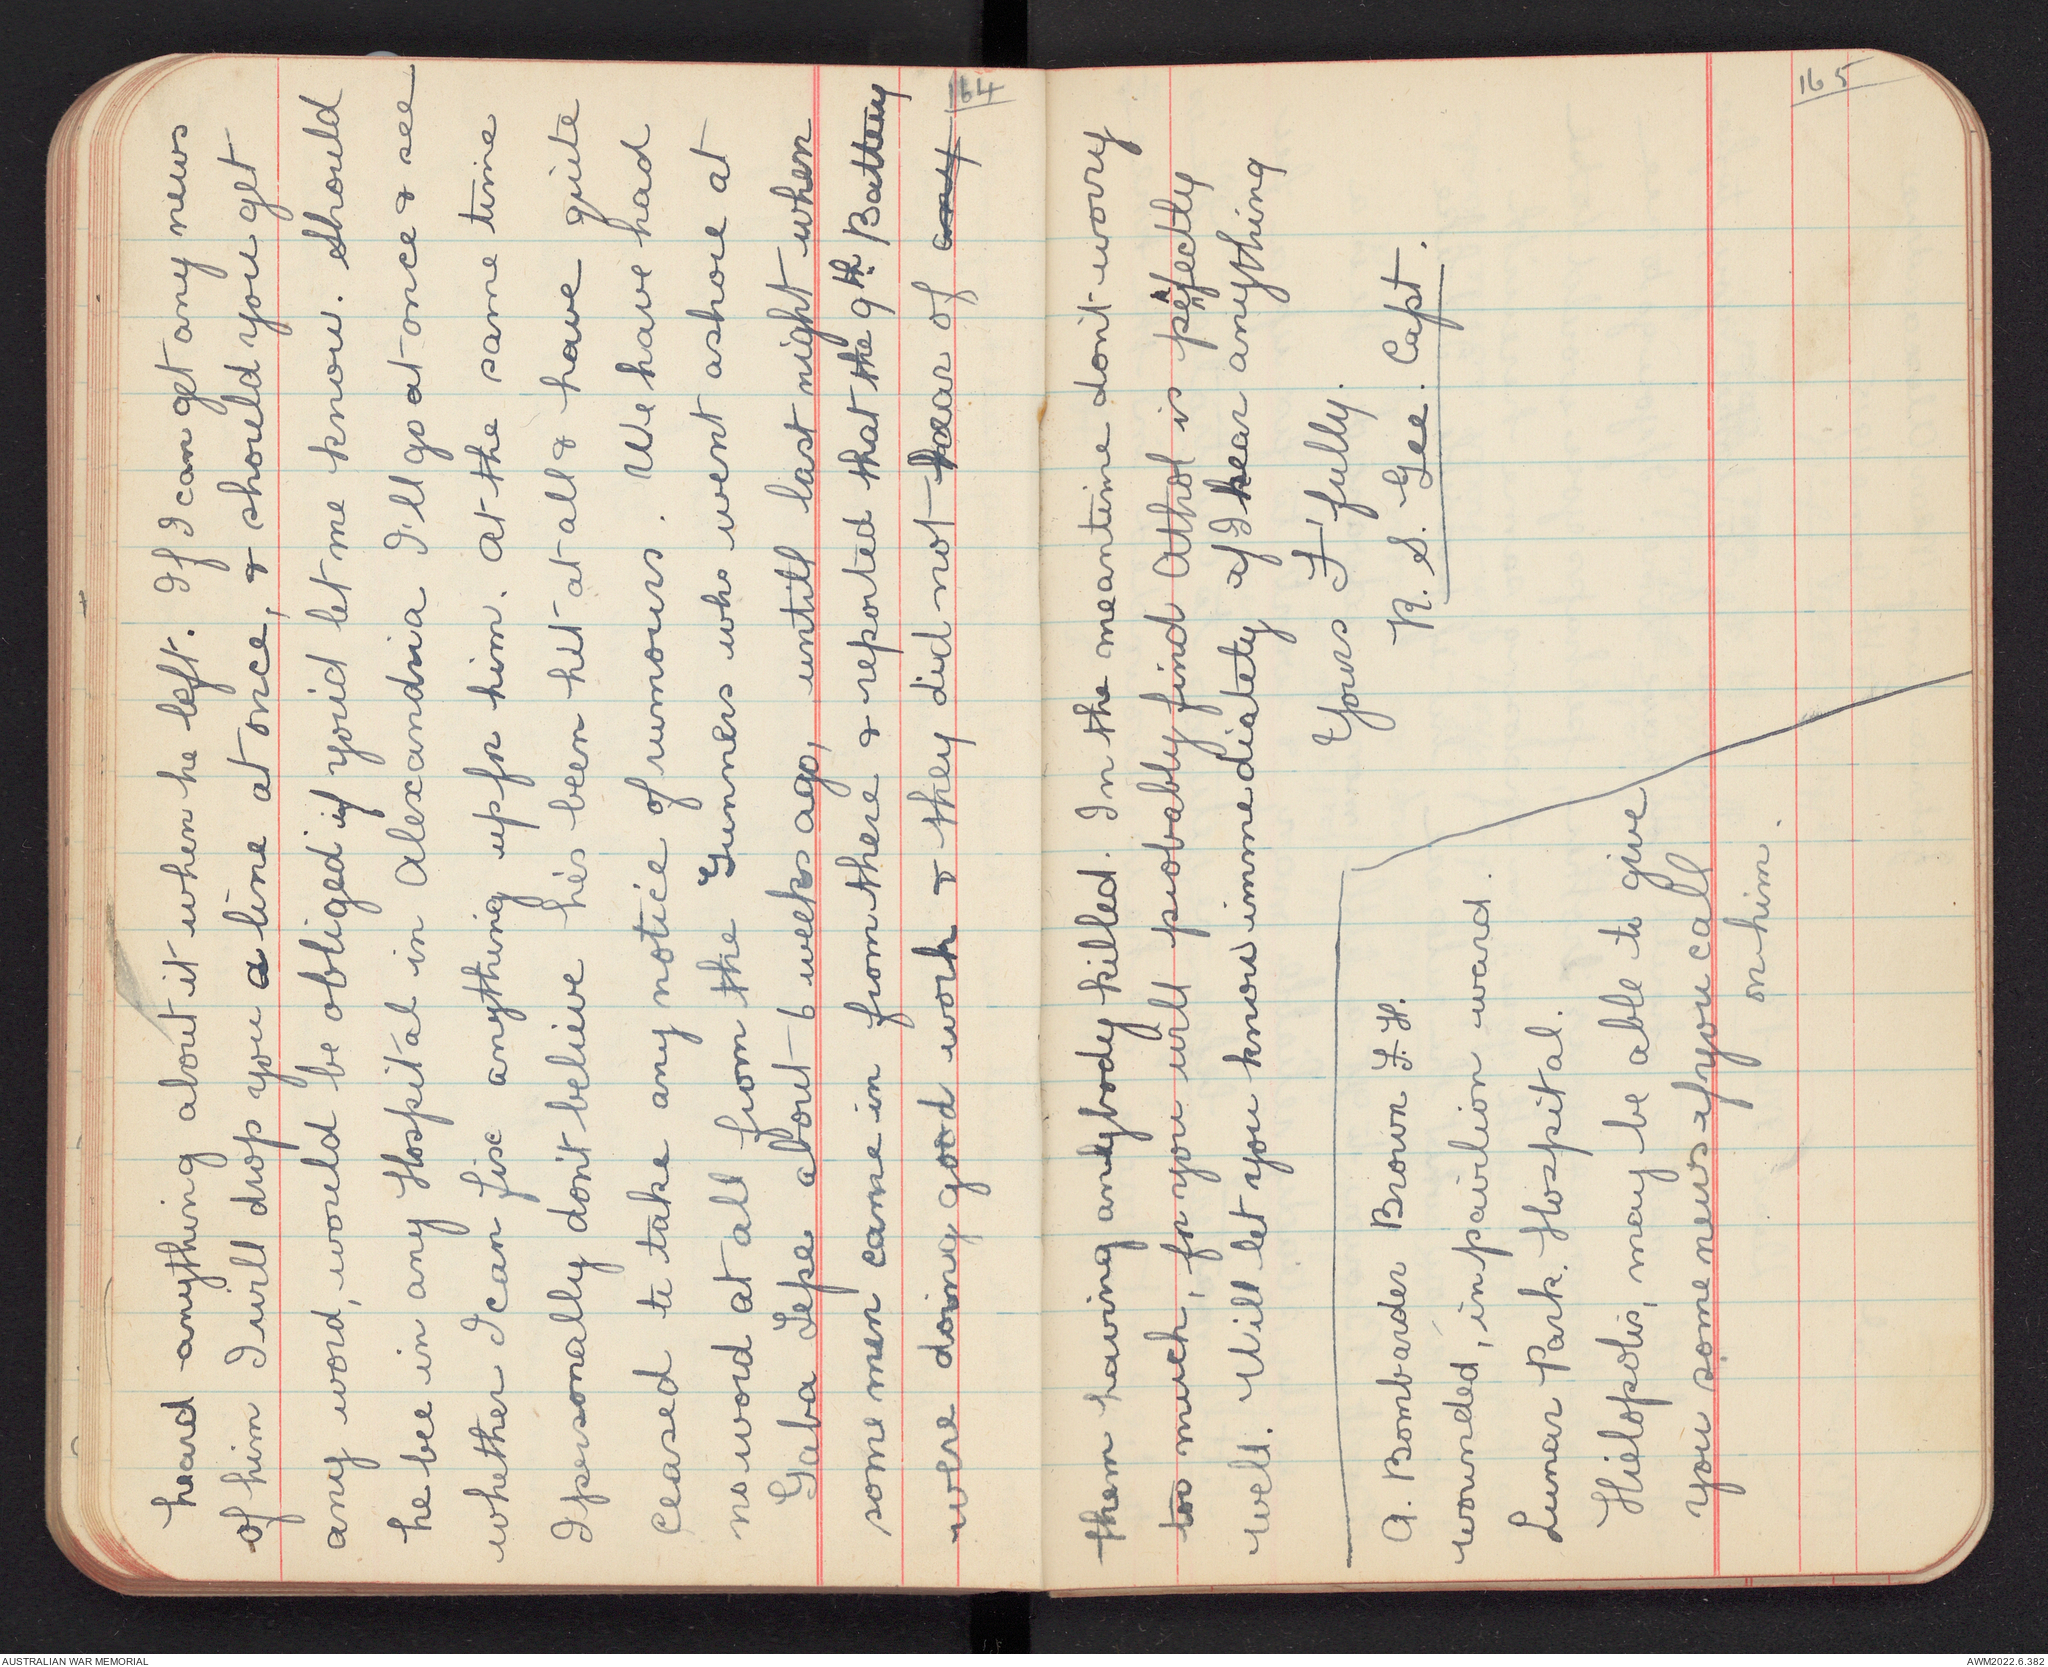 heard anything about it when he left. If I can get any news
of him I will drop you a line at once, & should you get
any word, would be obliged if you'd let me know. Should
he bee in any Hospital in Alexandria I'll go at once & see
whether I can fix anything up for him. At the same time
I personally don't believe he's been hit at all & have quite
ceased to take any notice of rumours. We have had
no word at all from the Gunners who went ashore at
Gaba Tepe about 6 weeks ago, untill last night when
some men came in from there & reported that the 9th Battery
were doing good work & they did not hear of any
164
them having anybody killed. In the meantime don't worry
too much, for you will probably find Athol is perfectly
well. Will let you know immediately if I hear anything
Yours F'fully.
R. S. Gee. Capt.
A. Bombarder Brown L. H.
wounded, in pavilion ward.
Lunar Park. Hospital.
Hielopolis, may be able to give
you some news if you call
on him.
165
AUSTRALIAN WAR MEMORIAL
AWM2022.6.382